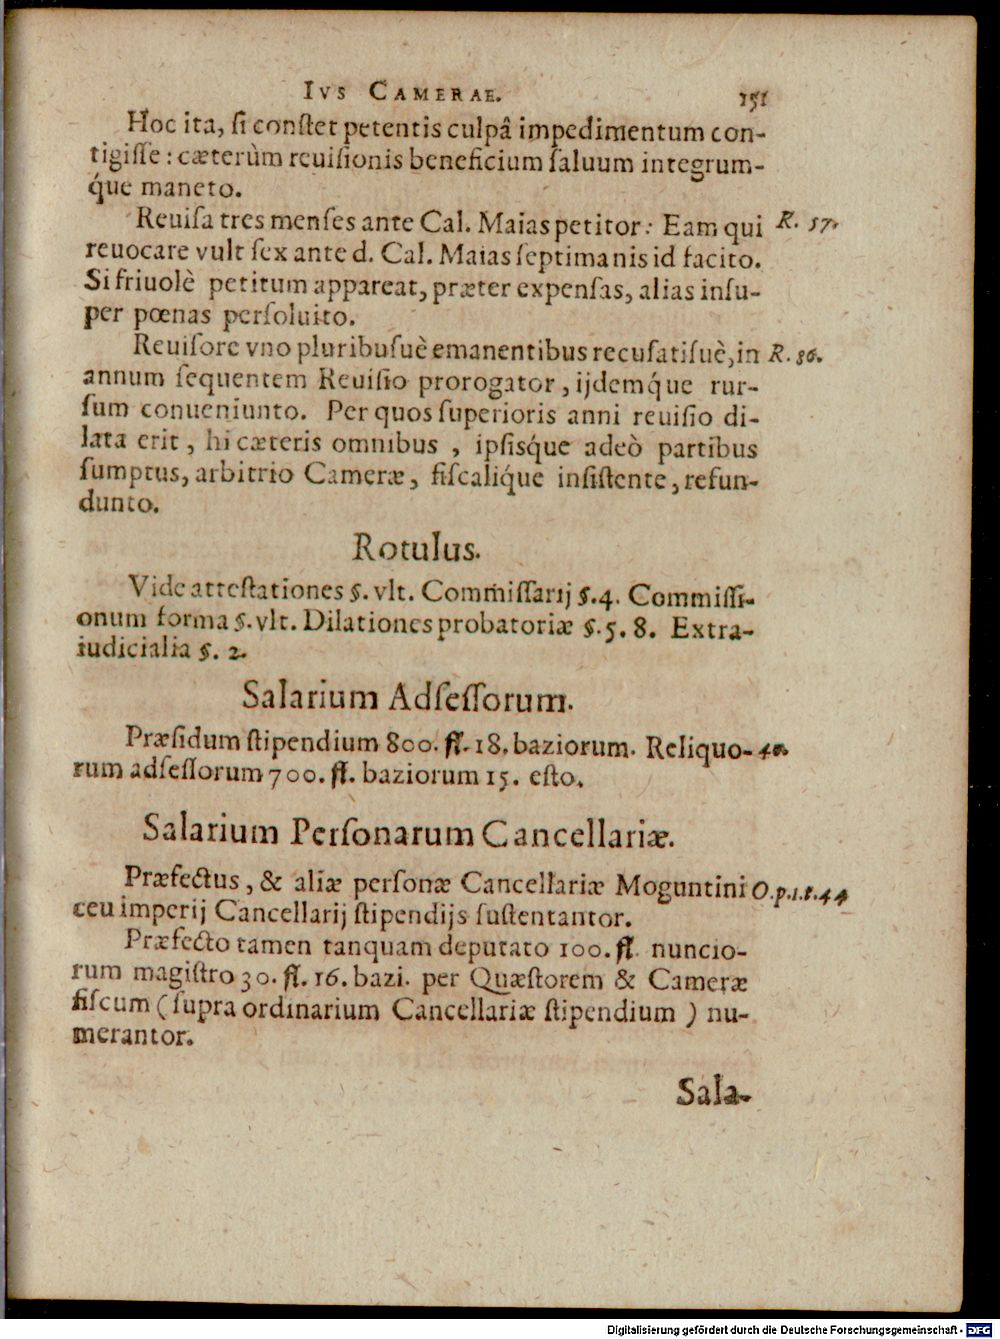 IVS CAMERAE. 151
Hoc ita, ſi conſtet petentis culpâ impedimentum con-
tigiſſe: cæterùm reuiſionis beneficium ſaluum integrum-
q́ue maneto.
Reuiſa tres menſes ante Cal. Maias petitor: Eam qui R. 57.
reuocare vult ſex ante d. Cal. Maias ſeptimanis id facito.
Si friuolè petitum appareat, præter expenſas, alias inſu-
per pœnas perſoluito.
Reuiſore vno pluribuſuè emanentibus recuſatiſuè, in R. 86.
annum ſequentem Reuiſio prorogator, ijdemq́ue rur-
ſum conueniunto. Per quos ſuperioris anni reuiſio di-
lata erit, hi cæteris omnibus, ipſisq́ue adeò partibus
ſumptus, arbitrio Cameræ, fiſcaliq́ue inſiſtente, refun-
dunto.
Rotulus.
Vide atteſtationes §. vlt. Com̃iſſarij §.4. Commiſſi-
onum forma §. vlt. Dilationes probatoriæ §.5.8. Extra-
iudicialia §. 2.
Salarium Adſeſſorum.
Præſidum ſtipendium 800. fl. 18. baziorum. Reliquo- 40.
rum adſeſſorum 700. fl. baziorum 15. eſto.
Salarium Perſonarum Cancellariæ.
Præfectus, & aliæ perſonæ Cancellariæ Moguntini O.p.1.t.44
ceu imperij Cancellarij ſtipendijs ſuſtentantor.
Præfecto tamen tanquam deputato 100. fl. nuncio-
rum magiſtro 30. fl. 16. bazi. per Quæſtorem & Cameræ
fiſcum (ſupra ordinarium Cancellariæ ſtipendium) nu-
merantor.
Sala-
Digitalisierung gefördert durch die Deutsche Forschungsgemeinschaft - DFG